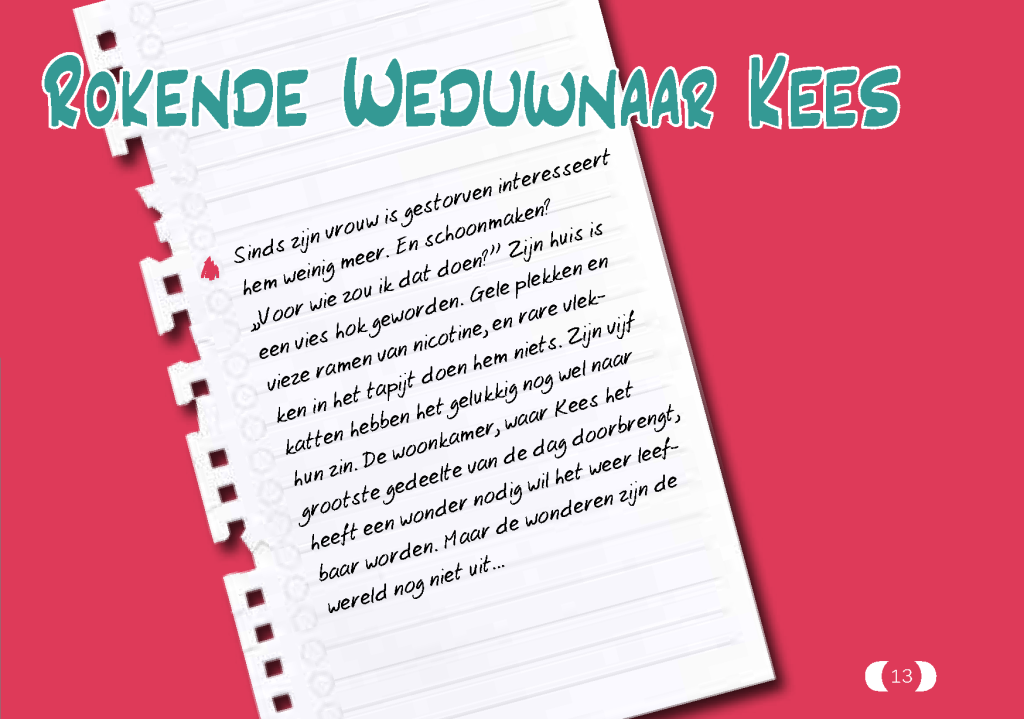 ROKENDE WEDUWNAAR KEES
Sinds zijn vrouw is gestorven interesseert
hem weinig meer. En schoonmaken?
„Voor wie zou ik dat doen?” Zijn huis is
een vies hok geworden. Gele plekken en
vieze ramen van nicotine, en rare vlek-
ken in het tapijt doen hem niets. Zijn vijf
katten hebben het gelukkig nog wel naar
hun zin. De woonkamer, waar Kees het
grootste gedeelte van de dag doorbrengt,
heeft een wonder nodig wil het weer leef-
baar worden. Maar de wonderen zijn de
wereld nog niet uit...
13